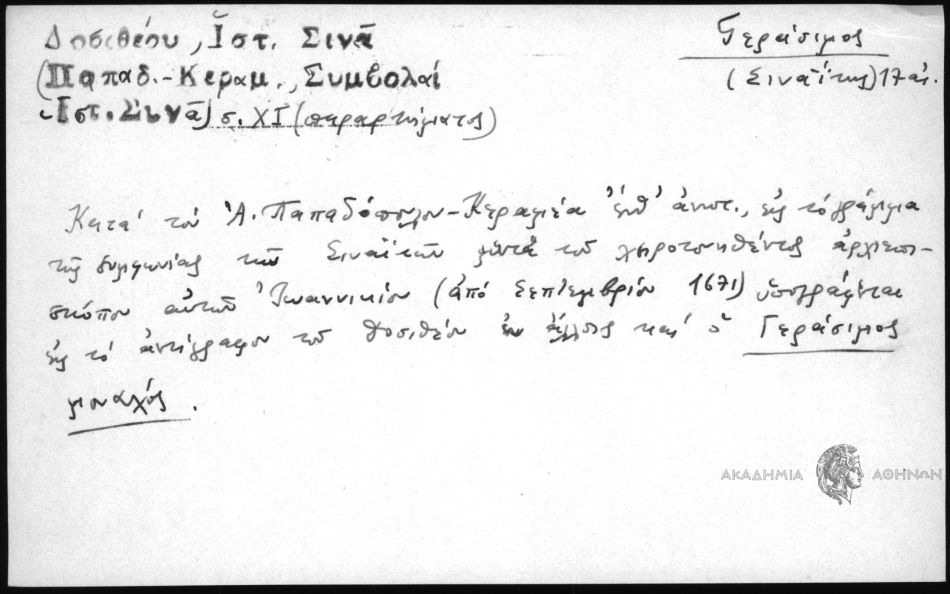 Δοσιθέου, Ἱστ. Σινᾶ
(Παπαδ.-Κεραμ., Συμβολαί
Ἱστ. Σινᾶ) σ. XI (παραρτήματος)
Γεράσιμος
(Σιναΐτης) 17 αἰ.
Κατά τόν Ἀ. Παπαδόπουλον-Κεραμέα ἐνθ' ἀνωτ., εἰς τό γράμμα
τῆς συμφωνίας τῶν Σιναϊτῶν μετά τοῦ χειροτονηθέντος ἀρχιεπι-
σκόπου αὐτῶν Ἰωαννικίου (ἀπό Σεπτεμβρίου 1671) ὑπογράφεται
εἰς τό ἀντίγραφον τοῦ Δοσιθέου ἐν ἄλλοις καί ὁ Γεράσιμος
μοναχός.
ΑΚΑΔΗΜΙΑ ΑΘΗΝΩΝ